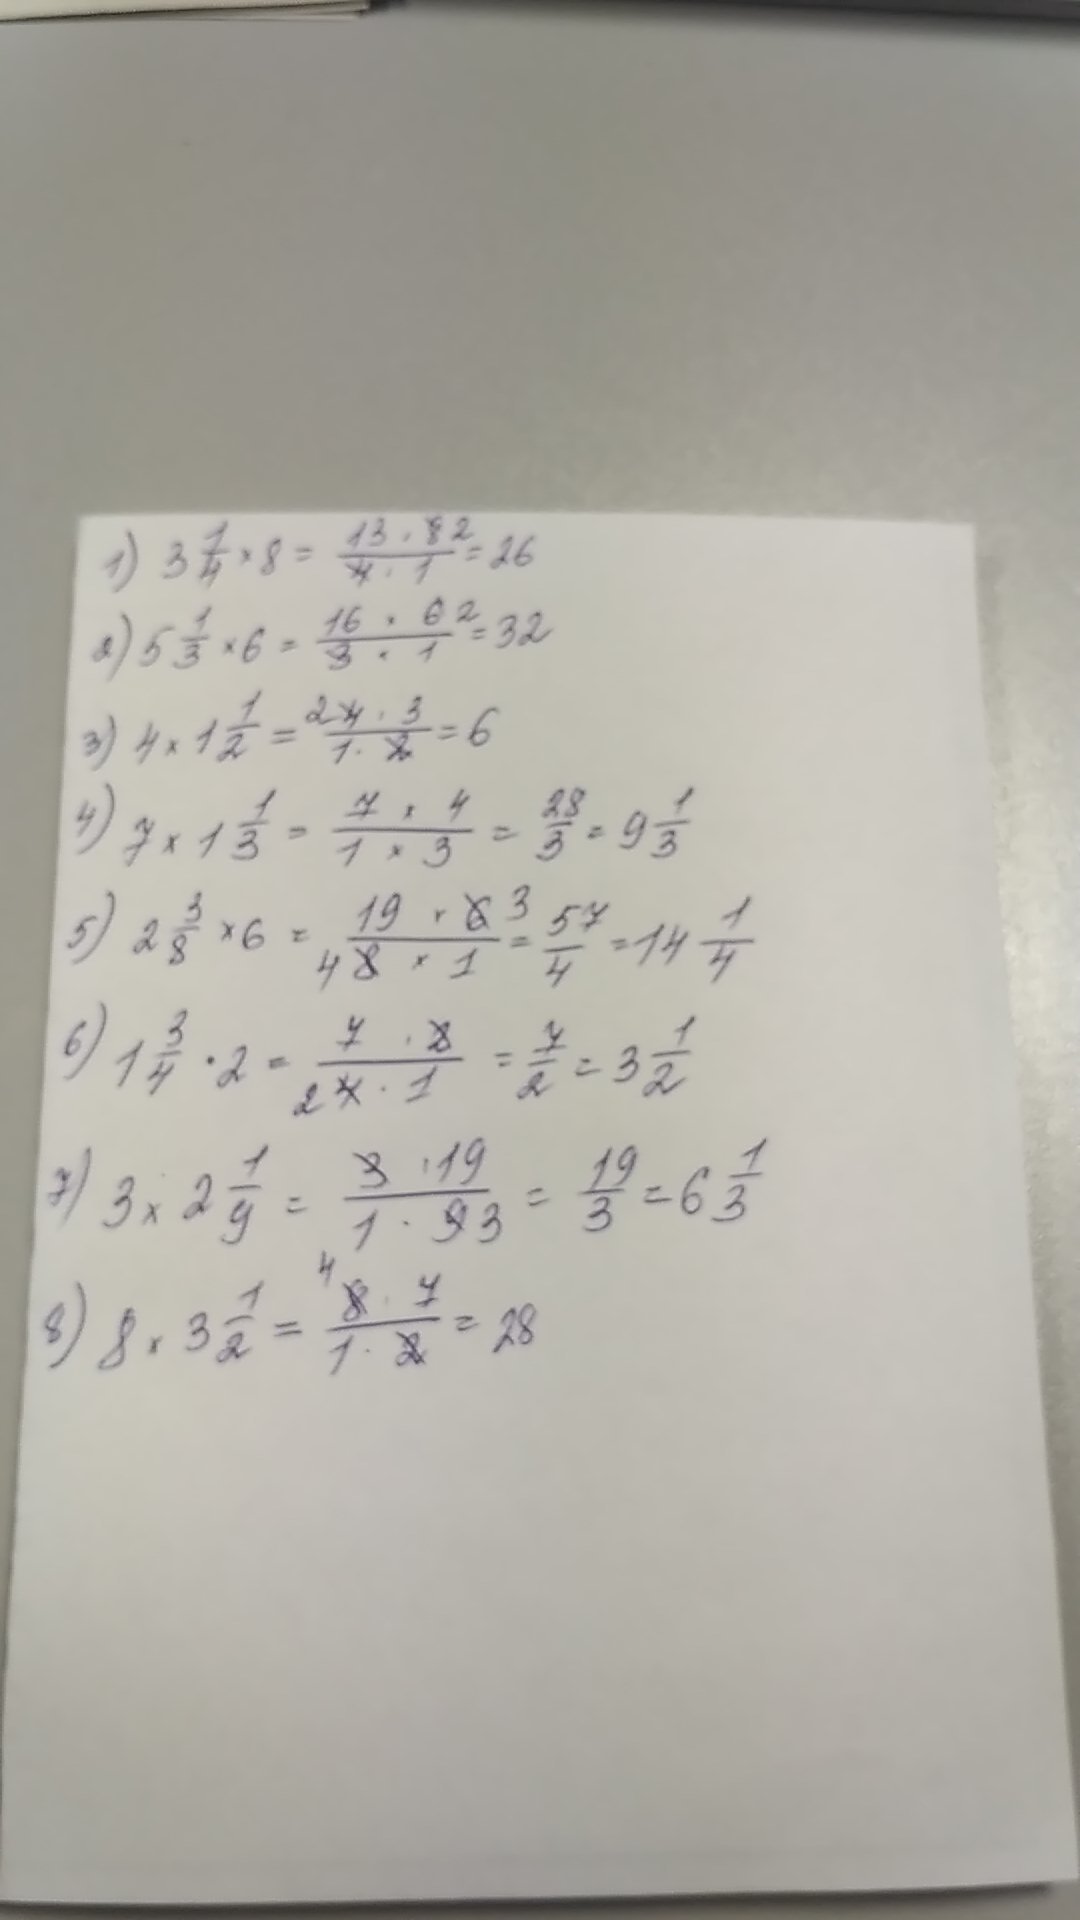 1) 3 1/4 × 8 = 13 · 8 2 / 4 · 1 = 26
2) 5 1/3 × 6 = 16 × 6 2 / 3 · 1 = 32
3) 4 × 1 1/2 = 2 4 · 3 / 1 · 2 = 6
4) 7 × 1 1/3 = 7 × 4 / 1 × 3 = 28/3 = 9 1/3
5) 2 3/8 × 6 = 19 × 6 3 / 4 8 × 1 = 57/4 = 14 1/4
6) 1 3/4 · 2 = 7 · 2 / 2 4 · 1 = 7/2 = 3 1/2
7) 3 × 2 1/9 = 3 · 19 / 1 · 9 3 = 19/3 = 6 1/3
8) 8 × 3 1/2 = 4 8 · 7 / 1 · 2 = 28